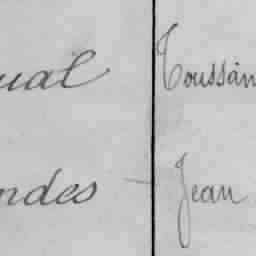 ual Toussain
ndes - Jean